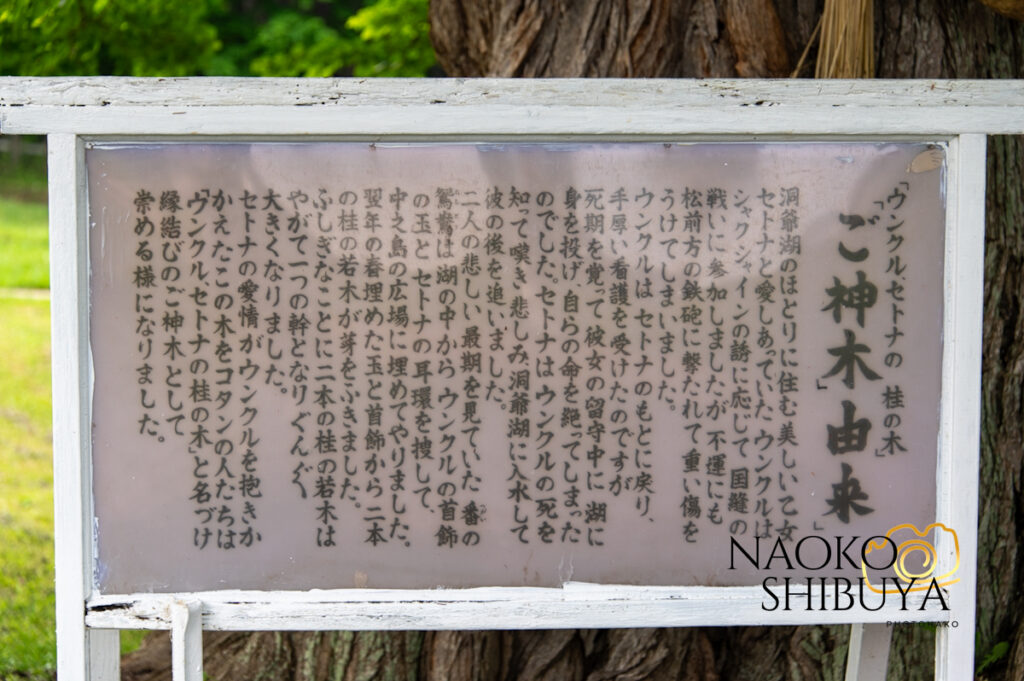 「ウンクル、セトナの 桂の木」
「ご神木」由来」
洞爺湖のほとりに住む美しい乙女
セトナと愛しあっていた ウンクルは
シャクシャインの誘に応じて 国縫の
戦いに参加しましたが 不運にも
松前方の鉄砲に撃たれて重い傷を
うけてしまいました。
ウンクルは セトナのもとに戻り、
手厚い看護を受けたのですが
死期を覚って 彼女の留守中に 湖に
身を投げ、自らの命を絶ってしまった
のでした。セトナは ウンクルの死を
知って 嘆き 悲しみ 洞爺湖に入水して
彼の後を追いました。
二人の悲しい最期を見ていた 一番の
つがい
鴛鴦は 湖の中から ウンクルの首飾
の玉と セトナの耳環を捜して、
中之島の広場に埋めてやりました。
翌年の春埋めた玉と首飾から二本
の桂の若木が芽をふきました。
ふしぎなことに二本の桂の若木は
やがて一つの幹となりぐんぐん
大きくなりました。
セトナの愛情がウンクルを抱きか
かえたこの木をコタンの人たちは
「ウンクル、セトナの桂の木」と名づけ
縁結びのご神木として
崇める様になりました。
NAOKO
SHIBUYA
PHOTOHAKO